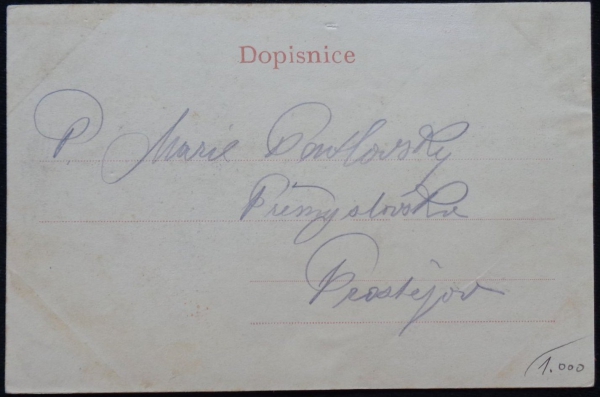 Dopisnice
P. Marie Pavlovský
Přemyslovka
Prostějov
1.000